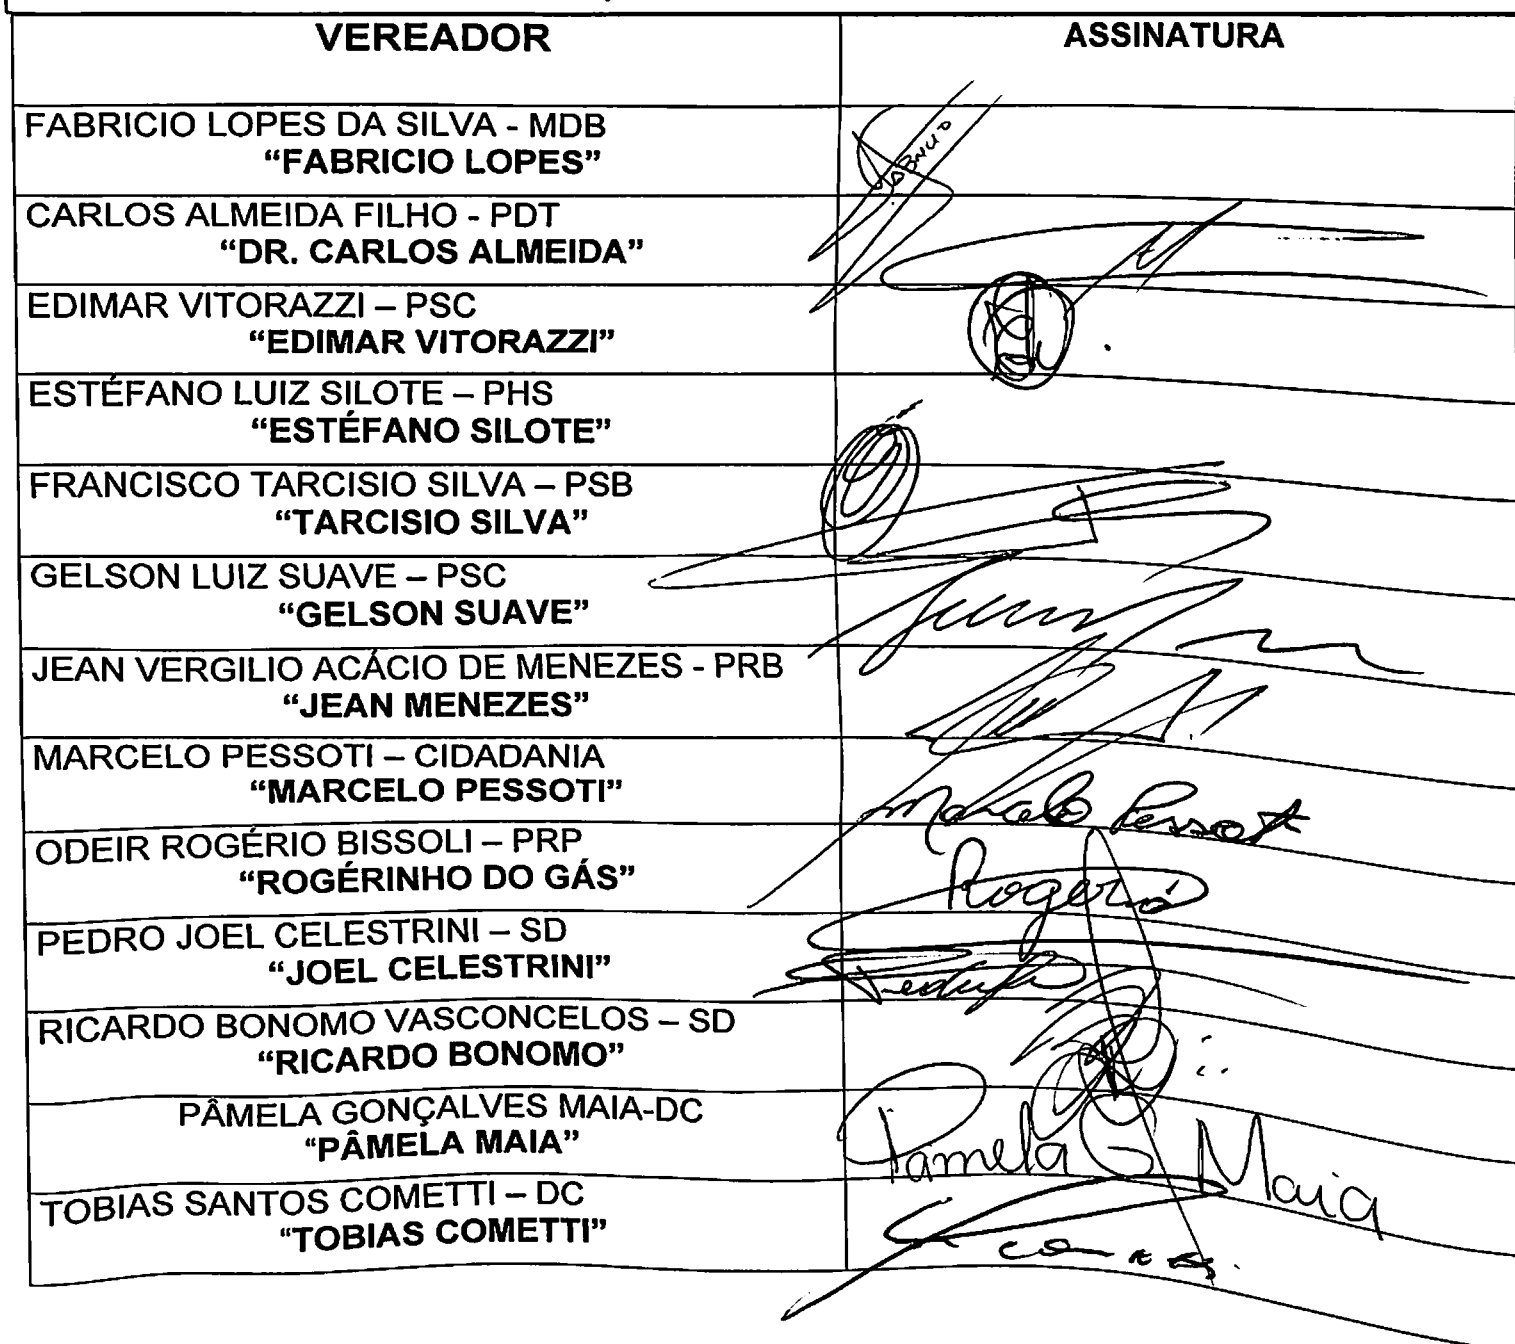 VEREADOR ASSINATURA
FABRICIO LOPES DA SILVA - MDB
“FABRICIO LOPES”
CARLOS ALMEIDA FILHO - PDT
“DR. CARLOS ALMEIDA”
EDIMAR VITORAZZI – PSC
“EDIMAR VITORAZZI”
ESTÉFANO LUIZ SILOTE – PHS
“ESTÉFANO SILOTE”
FRANCISCO TARCISIO SILVA – PSB
“TARCISIO SILVA”
GELSON LUIZ SUAVE – PSC
“GELSON SUAVE”
JEAN VERGILIO ACÁCIO DE MENEZES - PRB
“JEAN MENEZES”
MARCELO PESSOTI – CIDADANIA
“MARCELO PESSOTI”
Marcelo Pessoti
ODEIR ROGÉRIO BISSOLI – PRP
“ROGÉRINHO DO GÁS”
Rogério
PEDRO JOEL CELESTRINI – SD
“JOEL CELESTRINI”
RICARDO BONOMO VASCONCELOS – SD
“RICARDO BONOMO”
PÂMELA GONÇALVES MAIA-DC
“PÂMELA MAIA”
Pâmela G Maia
TOBIAS SANTOS COMETTI – DC
“TOBIAS COMETTI”